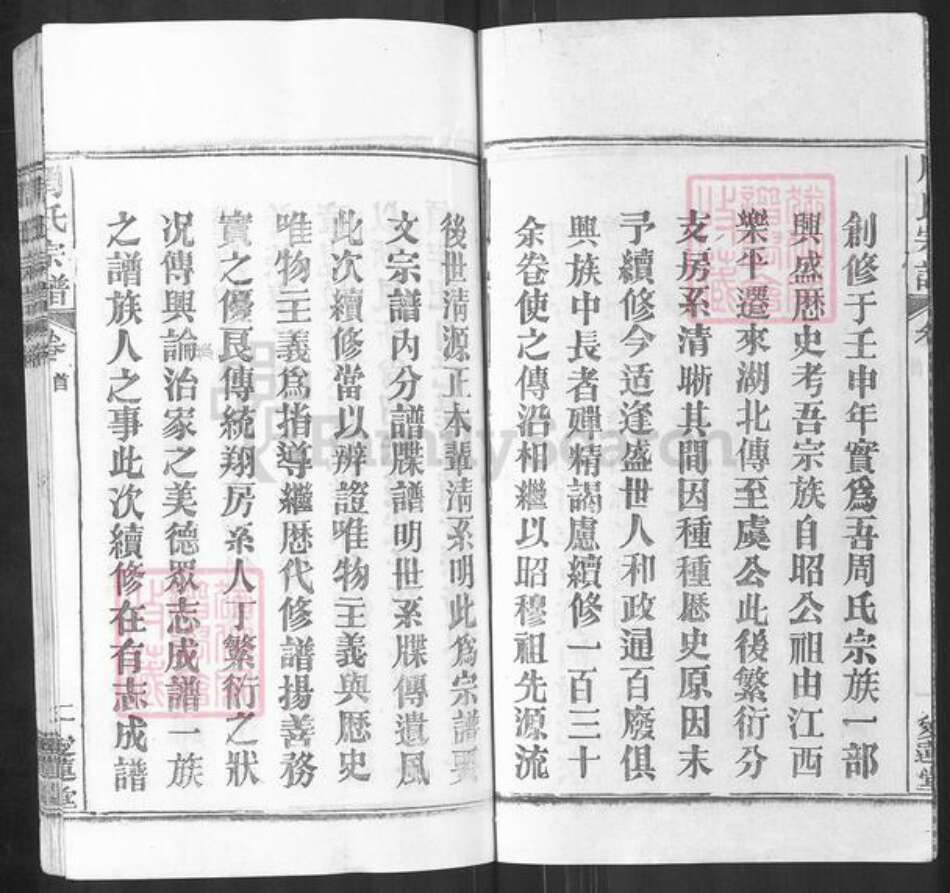 創修于壬申年實爲吾周氏宗族一部
興盛歷史考吾宗族自昭公祖由江西
樂平遷來湖北傳至虞公此後繁衍分
支房系清晰其間因種種歷史原因未
予續修今适逢盛世人和政通百廢俱
興族中長者殫精謁慮續修一百三十
余卷使之傳沿相繼以昭穆祖先源流
後世清源正本輩清系明此爲宗譜要
文宗譜内分譜牒譜明世系牒傳遺風
此次續修當以辨證唯物主義與歷史
唯物主義爲指導繼歷代修譜揚善務
實之優良傳統翔房系人丁繁衍之狀
况傳興論治家之美德眾志成譜一族
之譜族人之事此次續修在有志成譜
周氏宗譜
卷首
二
愛蓮堂